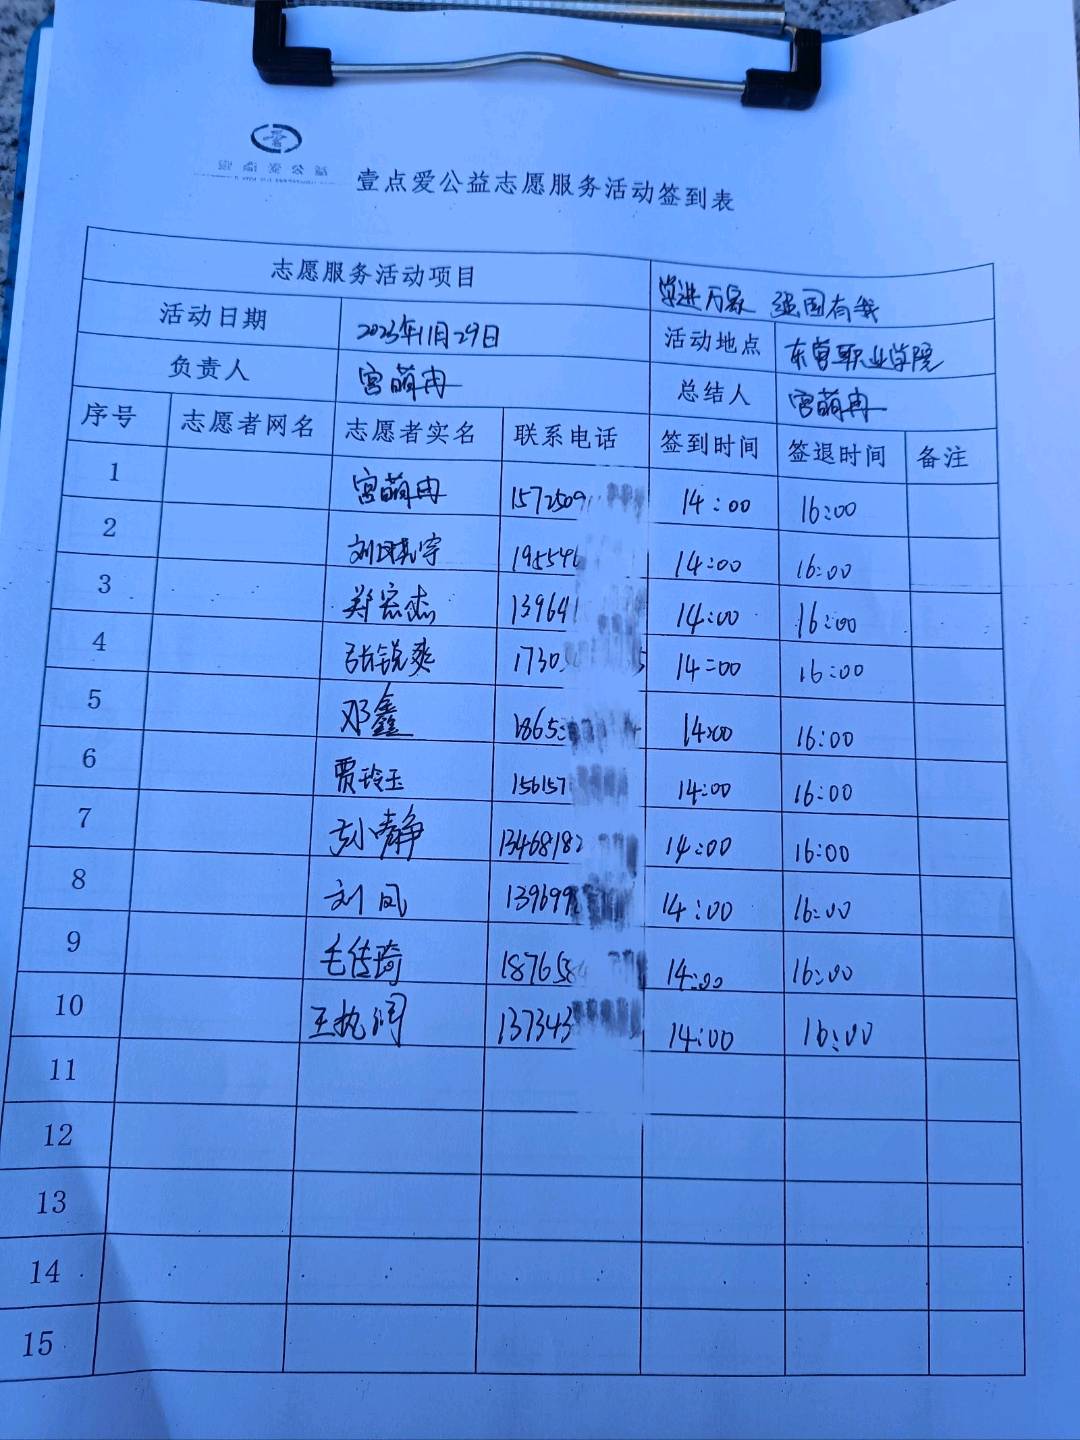 壹点爱公益
壹点爱公益志愿服务活动签到表
志愿服务活动项目 学进万家 强国有我
活动日期 2023年11月29日 活动地点 东营职业学院
负责人 宫萌冉 总结人 宫萌冉
序号 志愿者网名 志愿者实名 联系电话 签到时间 签退时间 备注
1 宫萌冉 1572509 14:00 16:00
2 195546 14:00 16:00
3 郑宏杰 13964 14:00 16:00
4 张锐爽 1730 14:00 16:00
5 邓鑫 1865 14:00 16:00
6 贾玲玉 156157 14:00 16:00
7 静 13468182 14:00 16:00
8 刘凤 139699 14:00 16:00
9 毛传琦 187658 14:00 16:00
10 王执润 137343 14:00 16:00
11
12
13
14
15